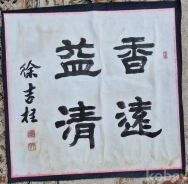 香遠
益清
徐吉柱